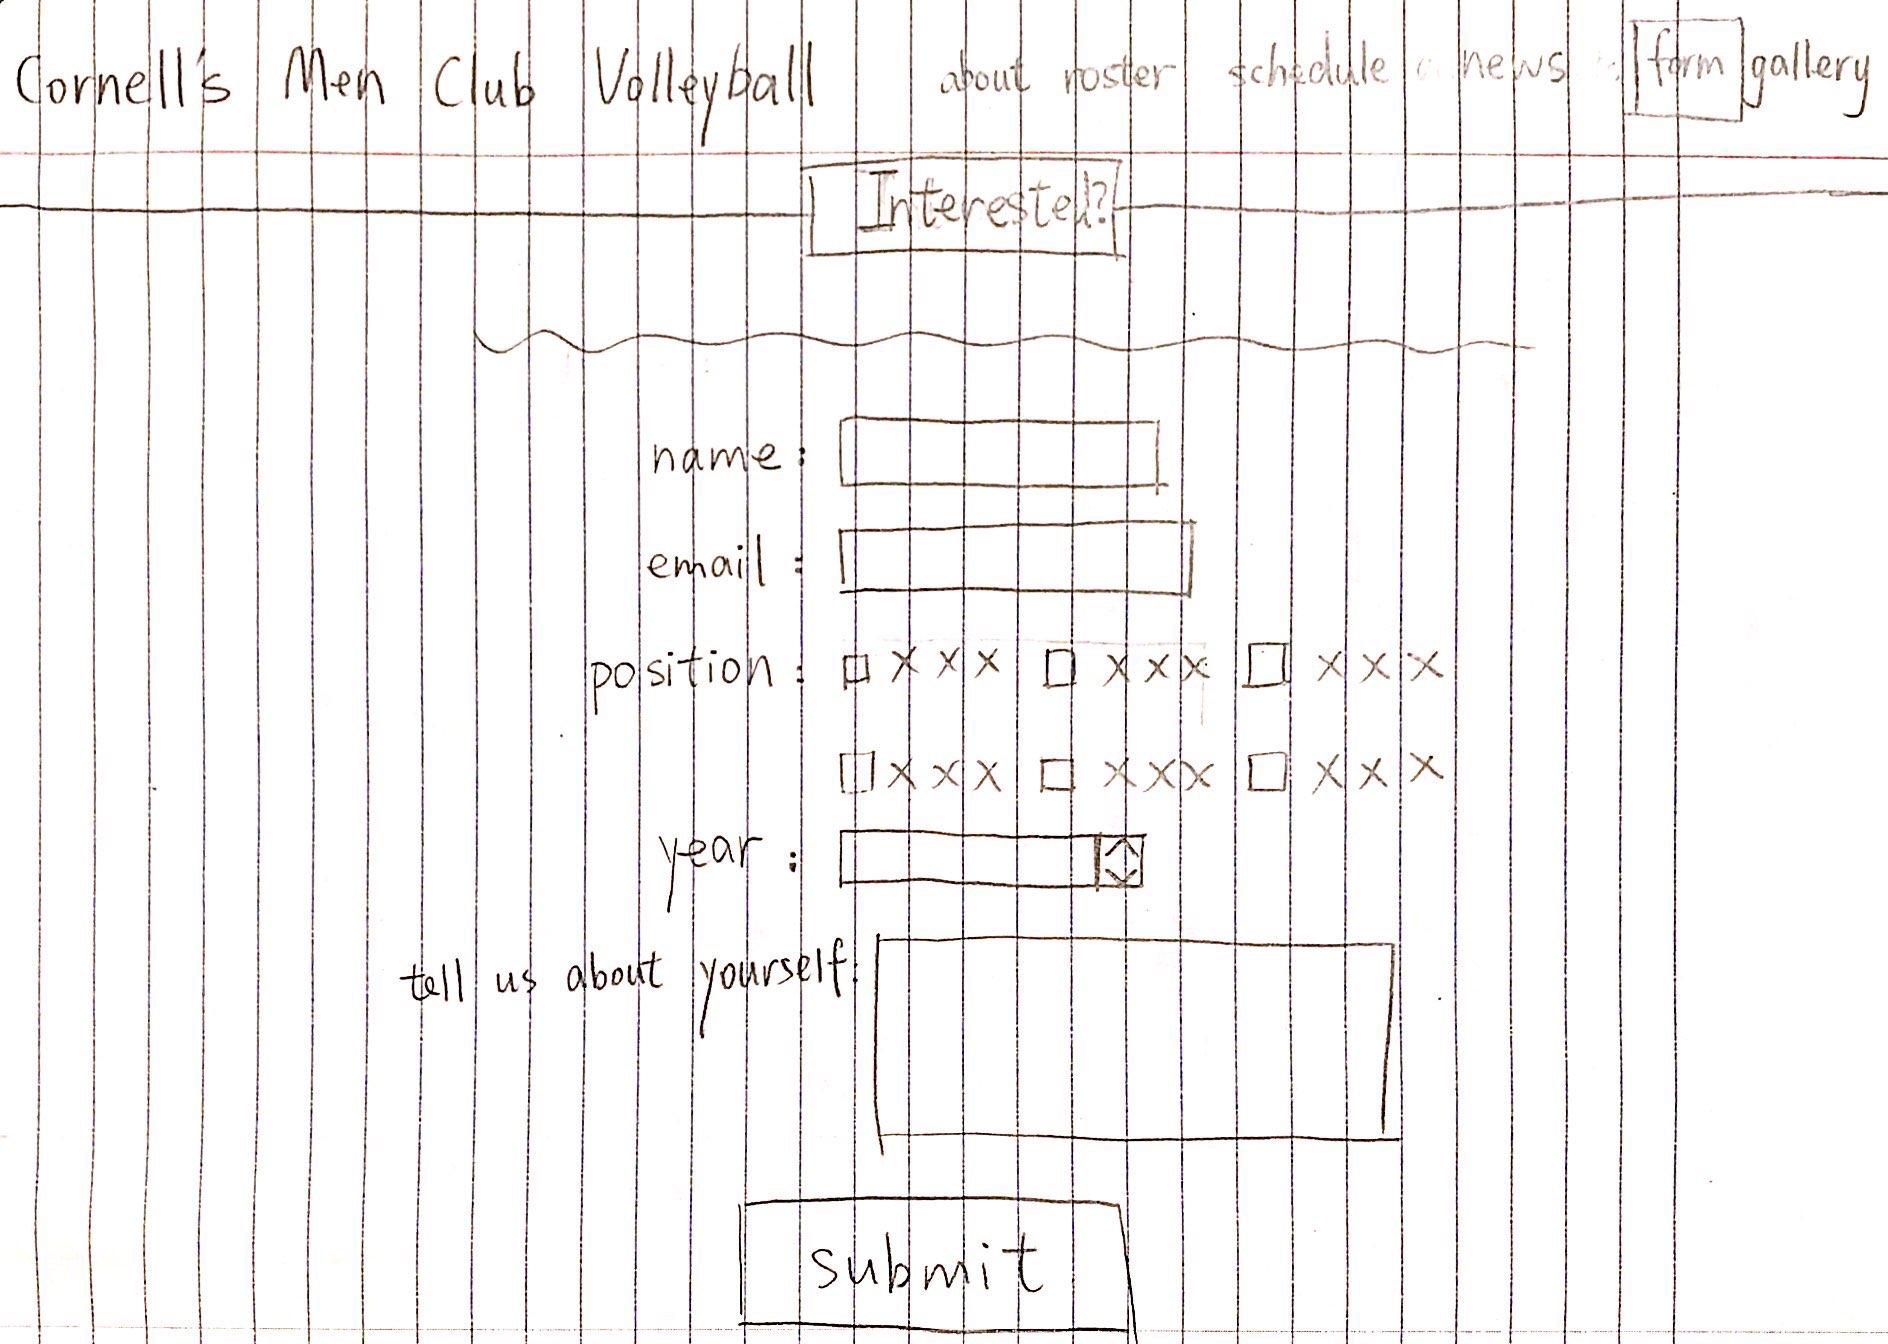 Cornell's Men Club Volleyball about roster schedule news form gallery
Interested?
name:
email:
position: x x x x x x x x x
x x x x x x x x x
year:
tell us about yourself:
submit